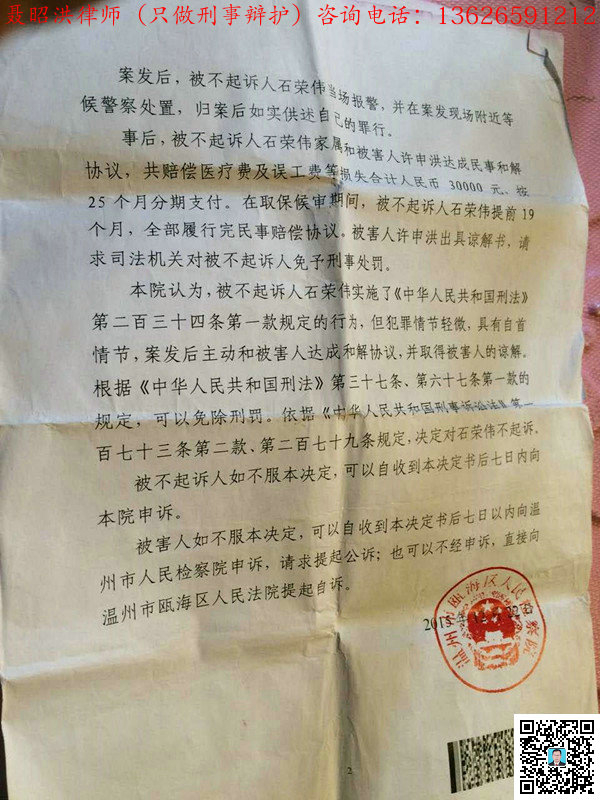 聂昭洪律师（只做刑事辩护）咨询电话：13626591212
案发后，被不起诉人石荣伟当场报警，并在案发现场附近等
候警察处置，归案后如实供述自己的罪行。
事后，被不起诉人石荣伟家属和被害人许申洪达成民事和解
协议，共赔偿医疗费及误工费等损失合计人民币 30000 元，按
25 个月分期支付。在取保候审期间，被不起诉人石荣伟提前 19
个月，全部履行完民事赔偿协议。被害人许申洪出具谅解书，请
求司法机关对被不起诉人免予刑事处罚。
本院认为，被不起诉人石荣伟实施了《中华人民共和国刑法》
第二百三十四条第一款规定的行为，但犯罪情节轻微，具有自首
情节，案发后主动和被害人达成和解协议，并取得被害人的谅解。
根据《中华人民共和国刑法》第三十七条、第六十七条第一款的
规定，可以免除刑罚。依据《中华人民共和国刑事诉讼法》第一
百七十三条第二款、第二百七十九条规定，决定对石荣伟不起诉。
被不起诉人如不服本决定，可以自收到本决定书后七日内向
本院申诉。
被害人如不服本决定，可以自收到本决定书后七日以内向温
州市人民检察院申诉，请求提起公诉；也可以不经申诉，直接向
温州市瓯海区人民法院提起自诉。
温州市瓯海区人民检察院
2